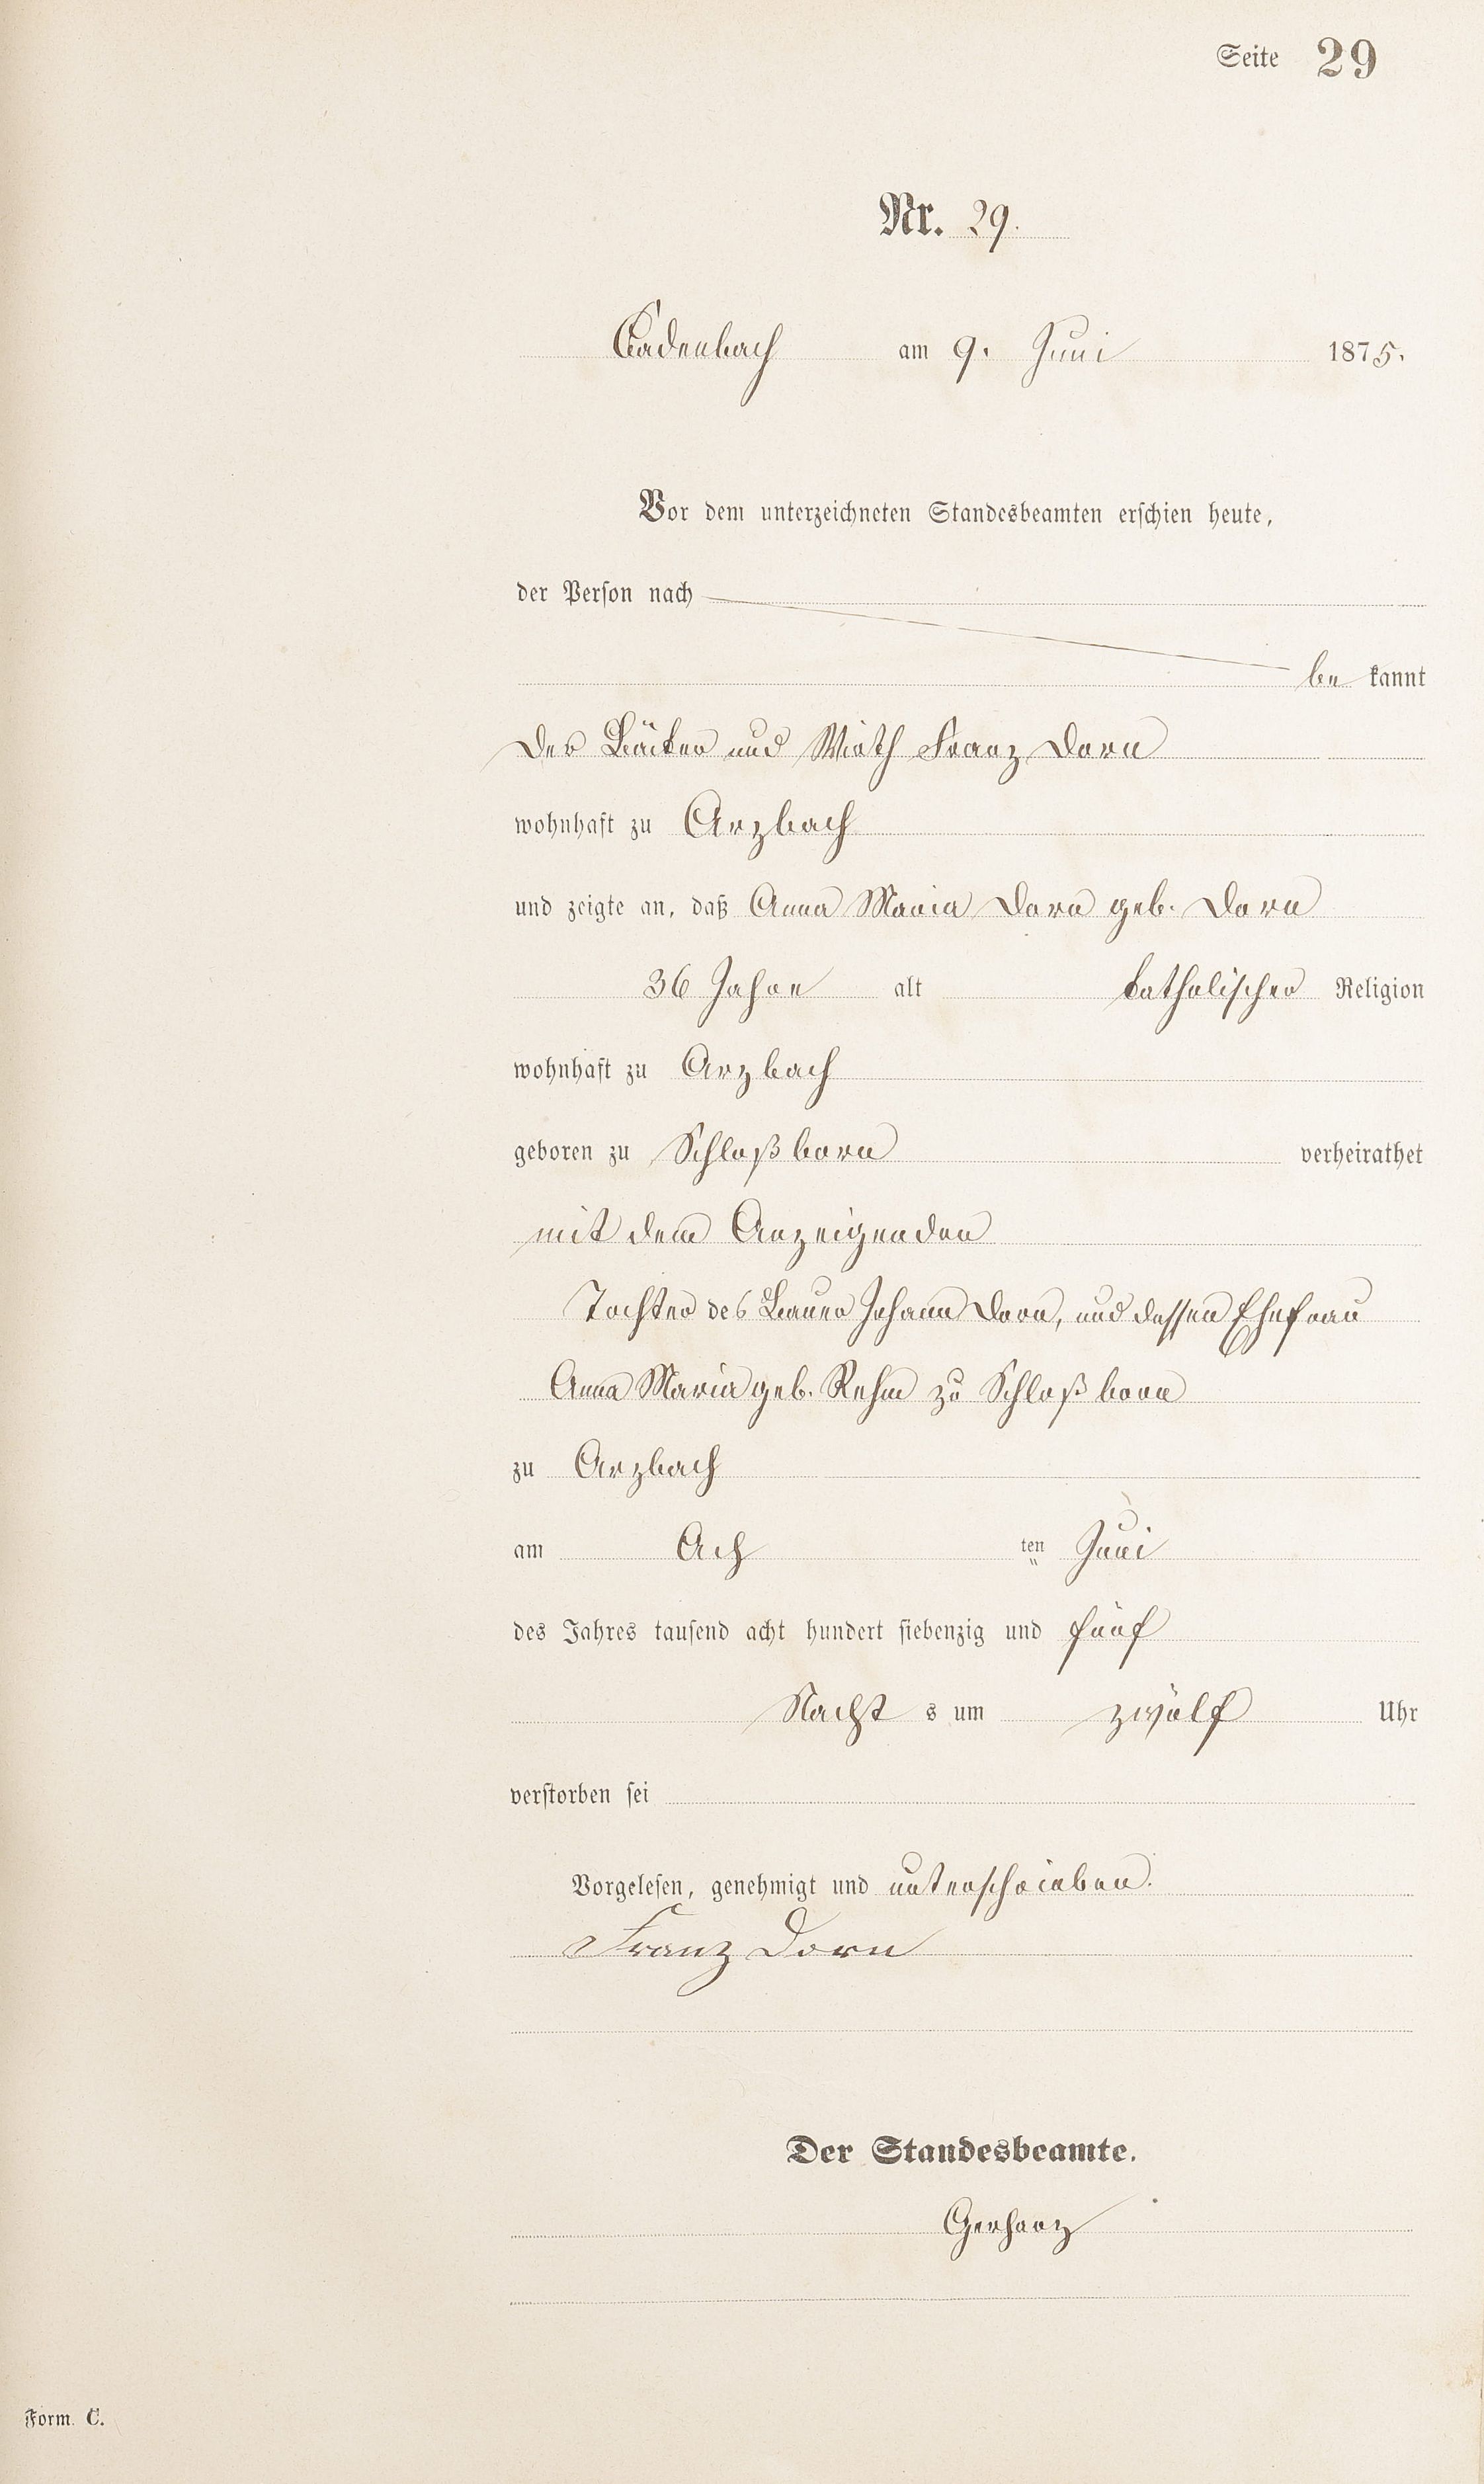 Seite 29
Nr. 29.
Cadenbach am 9. Juni 1875.
Vor dem unterzeichneten Standesbeamten erschien heute,
der Person nach
be kannt
Der Bäcker und Wirth Franz Dorn
wohnhaft zu Arzbach
und zeigte an, daß Anna Maria Dorn geb. Dorn
36 Jahre alt katholischer Religion
wohnhaft zu Arzbach
geboren zu Schloßborn verheirathet
mit dem Anzeigenden
Tochter des Bauer Johann Dorn, und dessen Ehefrau
Anna Maria geb. Rehm zu Schloßborn
zu Arzbach
am Ach ten Juni
des Jahres tausend acht hundert siebenzig und fünf
Nacht s um zwölf Uhr
verstorben sei
Vorgelesen, genehmigt und unterschrieben.
Franz Dorn
Der Standesbeamte.
Gerharz
Form. C.